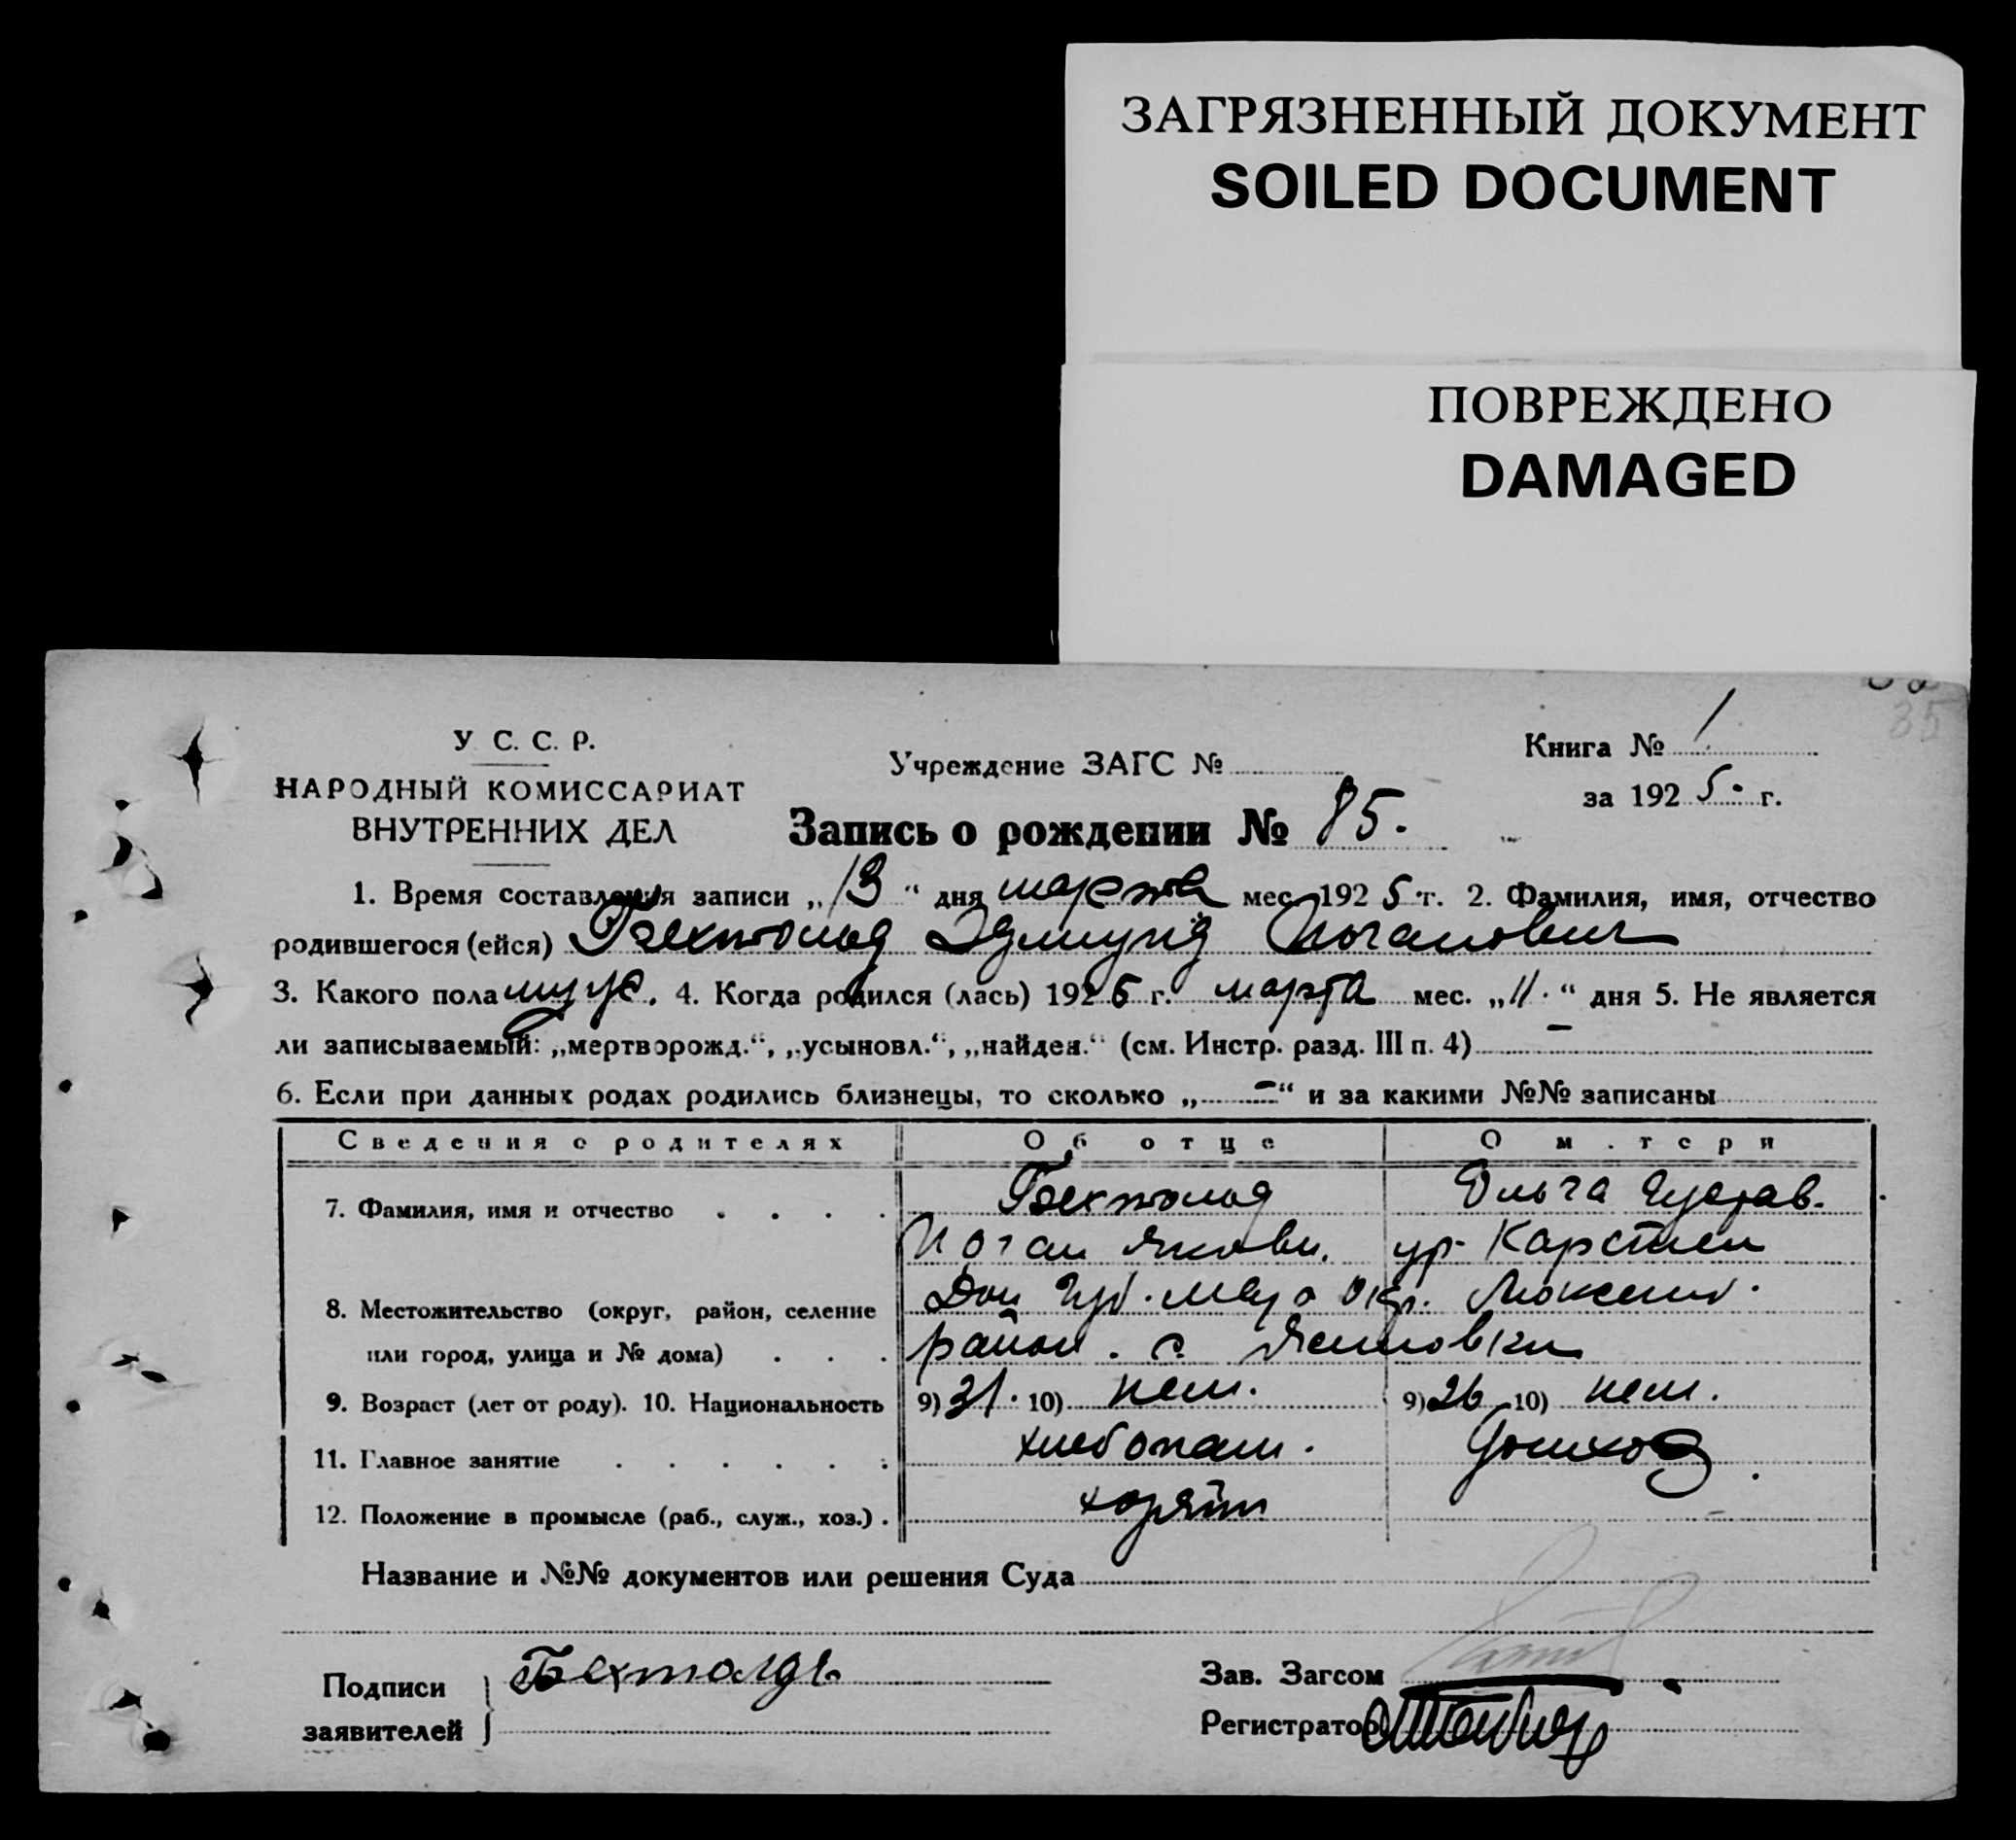 ЗАГРЯЗНЕННЫЙ ДОКУМЕНТ
SOILED DOCUMENT
ПОВРЕЖДЕНО
DAMAGED
35
У С. С. Р.
НАРОДНЫЙ КОМИССАРИАТ
ВНУТРЕННИХ ДЕЛ
Учреждение ЗАГС №
Книга № 1
за 1925. г.
Запись о рождении № 85.
1. Время составления записи „13“ дня марта мес. 1925 г. 2. Фамилия, имя, отчество
родившегося (ейся) Бехтольд Эдмунд Иоганович
3. Какого пола муж. 4. Когда родился (лась) 1925 г. марта мес. „11.“ дня 5. Не является
ли записываемый: „мертворожд.“, „усыновл.“, „найден.“ (см. Инстр. разд. III п. 4) –
6. Если при данных родах родились близнецы, то сколько „–“ и за какими №№ записаны
Сведения о родителях Об отце О м.тери
7. Фамилия, имя и отчество Бехтольд Ольга Густав.
Иоган Якови. ур. Карстен
8. Местожительство (округ, район, селение Дон Губ. Мар. Окр. Люксемб.
или город, улица и № дома) район. с.
9. Возраст (лет от роду). 10. Национальность 9) 31. 10) нем. 9) 26 10) нем.
11. Главное занятие хлебопаш. домхоз.
12. Положение в промысле (раб., служ., хоз.) хозяин –
Название и №№ документов или решения Суда
Подписи
заявителей
Бехтолдъ
Зав. Загсом
Регистратор